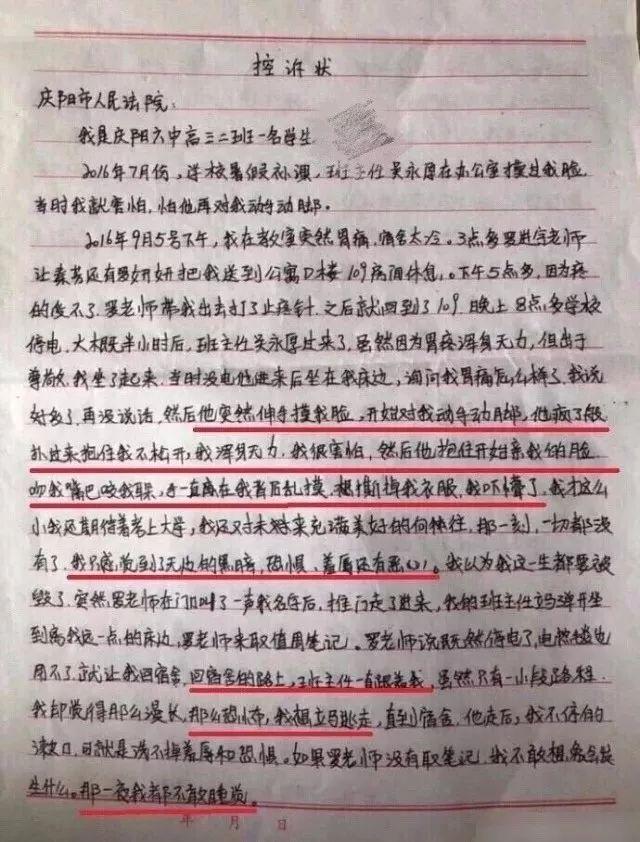 控诉状
庆阳市人民法院：
我是庆阳六中高三二班一名学生
2016年7月份，学校暑假补课，班主任吴永厚在办公室摸过我脸
当时我就害怕，怕他再对我动手动脚。
2016年9月5号下午，我在教室突然胃痛，宿舍太冷。3点多罗进宇老师
让秦芳还有罗妞妞把我送到公寓D楼109房间休息。下午5点多，因为疼
的受不了，罗老师带我出去打了止疼针，之后就回到了109。晚上8点多学校
停电，大概半小时后，班主任吴永厚过来了，虽然因为胃疼浑身无力，但出于
尊敬，我坐了起来，当时没电他进来后坐在我床边，询问我胃痛怎么样了，我说
好多了，再没说话，然后他突然伸手摸我脸，开始对我动手动脚，他疯了般
扑过来抱住我不松开，我浑身无力，我很害怕，然后他抱住开始亲我的脸
吻我嘴巴咬我耳朵，手一直在我背后乱摸，想撕掉我衣服，我吓懵了，我才这么
小我还期待着考上大学，我还对未来充满美好的向往，那一刻，一切都没
有了，我只感觉到了无边的黑暗，恐惧、羞辱还有恶心。我以为我这一生都要被
毁了，突然罗老师在门口叫了一声我名字后，推门走了进来，我的班主任立马弹开坐
到离我远一点的床边，罗老师来取值周笔记。罗老师说既然停电了，电热毯也
用不了，就让我回宿舍，回宿舍的路上，班主任一直跟着我，虽然只有一小段路程
我却觉得那么漫长，那么恐怖，我想立马逃走，直到宿舍，他走后，我不停的
漱口，可就是洗不掉羞辱和恐惧。如果罗老师没有取笔记，我不敢想象会发
生什么。那一夜我都不敢睡觉。
年 月 日